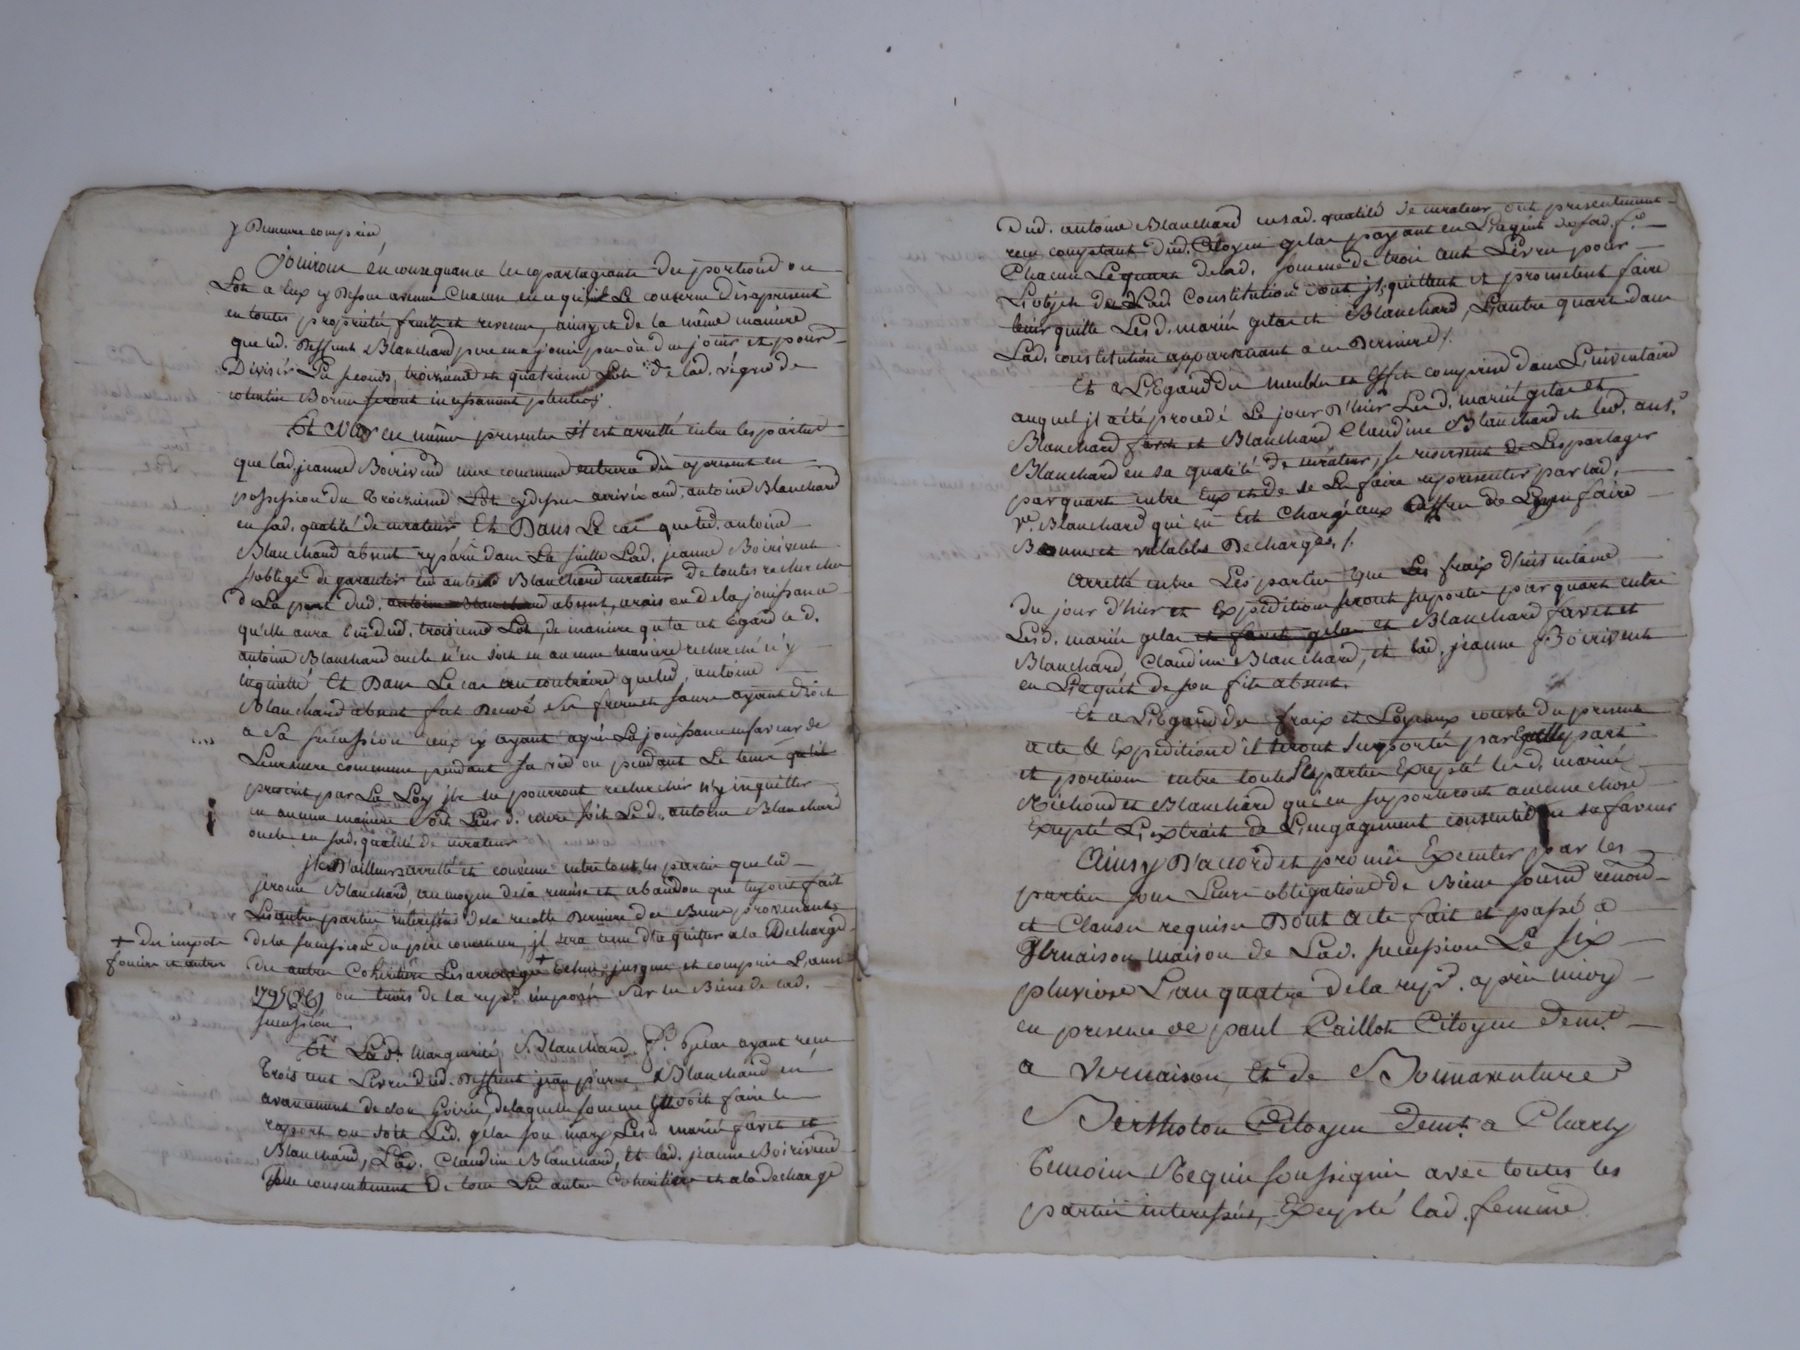 y Demeure comprise,
Jouiront en consequance les copartageants des portions ou
Lots a Eux cy Dessus avenus Chacun en ce qui le conserne dès apresent
en toutes proprietés, fruits et revenus, ainsy et de la même maniere
que led. Deffunt Blanchard pere en a joui ou dû jouir et pour
Diviser Les second, troizieme et quatrieme Lots de lad. vigne de
cotentin Bornes seront incessament plantées.
Et Par ces mêmes presentes il est arretté entre les parties
que lad. jeanne Boirivend mere commune entrera dès apresent en
possession du troizieme Lot cydessus arrivé aud. antoine Blanchard
en sad. qualité de curateur Et Dans Le cas que led. antoine
Blanchard absent reparû dans La suitte Lad. jeanne Boirivent
s'oblige de garantir led. antoine Blanchard curateur de toutes recherches
de La part dud. absent, arais oud de la jouissance
qu'elle aura L'un dud. troisieme Lot, de maniere qu'a cet Egard led.
antoine Blanchard oncle n'en soit en aucune maniere recherché n'y
inquietté Et Dans Le cas au contraire que led. antoine
Blanchard absent fut Decedé Ses freres et soeurs ayant droit
a Sa succession ceux cy ayant agréé La jouissance en faveur de
Leur mere commune pendant sa vie ou pendant Le tems
prescrit par La Loy ils ne pourront rechercher n'y inquietter
en aucune maniere soit Leur d. mere soit Led. antoine Blanchard
oncle en sad. qualité de curateur
Il est D'ailleurs arretté et convenu entre touttes les parties que led.
jerome Blanchard, au moyen de la remise et abandon que luy ont fait
Les autres parties interessées de la recolte Derniere des Biens provenants
de la succession du pere commun, il sera tenu d'acquitter a la Decharge
des autres Cohéritiers Les arrerages + Echus jusques et compris L'année
+ des impots
foncier et autres
1795 (v.s.) ou trois de la rep.e imposés sur les Biens de lad.
succession
Et Lad.e Marguerite Blanchard f.e Gelas ayant reçu
trois cent Livres dud. Deffunt jean pierre Blanchard en
avancement de son hoirie, delaquelle somme Elle doit faire le
raport ou soit Led. gelas son mary Lesd. mariés favet et
Blanchard, Lad. Claudine Blanchard, Et lad. jeanne Boirivend
De consentement de tous Les autres Cohéritiers et a la decharge
Dud. antoine Blanchard en sad. qualité de curateur ont presentement
reçu comptant Dud. Citoyen gelas payant en L'acquit de sad. f.e
Chacun Le quart de lad. somme de trois cent Livres pour
L'objet de Lad. Constitution dont ils quittent et promettent faire
tenir quitte Lesd. mariés gelas et Blanchard, L'autre quart dans
Lad. constitution appartenant a ces Derniers /.
Et a L'Egard des meubles et Effets compris dans L'inventaire
auquel il a été procedé Le jour D'hier Lesd. mariés gelas et
Blanchard favet et Blanchard Claudine Blanchard et led. ant.e
Blanchard en sa qualité de curateur, se reservent de Les partager
par quart entre Eux et de se Les faire representer par lad.
v.e Blanchard qui en Est chargée aux offres de Leur en faire
Bonnes et valables Decharges. /.
Arretté entre Les parties que Les fraix d'inventaire
du jour d'hier et Expéditions seront suportés par quart entre
Lesd. mariés gelas et Blanchard favet et
Blanchard, Claudine Blanchard, et lad. jeanne Boirivent
en L'acquit de son fils absent.
Et a L'Egard des fraix et Loyaux couts du present
acte & Expeditions ils seront Supportés par Egalle part
et portion entre toutes Les parties Excepté lesd. mariés
Michoud et Blanchard qui en suporteront aucune chose
Excepté L'extrait de L'engagement consenti en sa faveur
Ainsy D'accord et promis Executer par les
parties sous Leurs obligations de Biens soumd. renon.
et Clauses requises Dont acte fait et passé a
Vernaison maison de Lad. succession Le six
pluviose L'an quatre de la rep.e après midy
en presence de paul Caillot Citoyen dem.t
a Vernaison Et de Bonnaventure
Bertholon Citoyen dem.t a Charly
temoins Requis soussignés avec toutes les
parties interessées, Excepté lad. femme